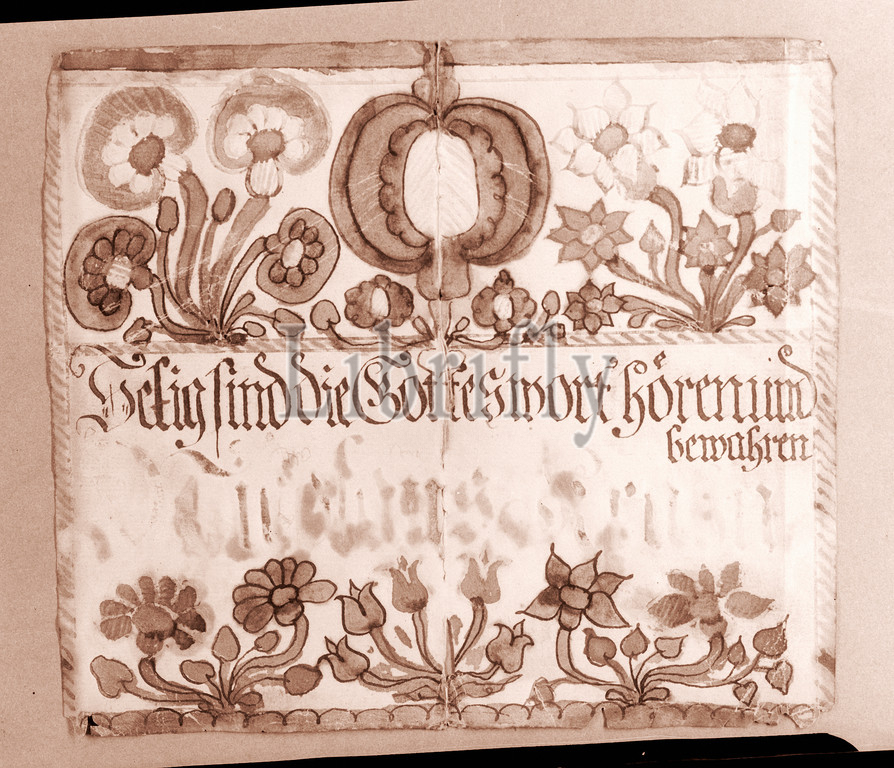 Selig sind die Gottes wort hören und
bewahren
Librifly